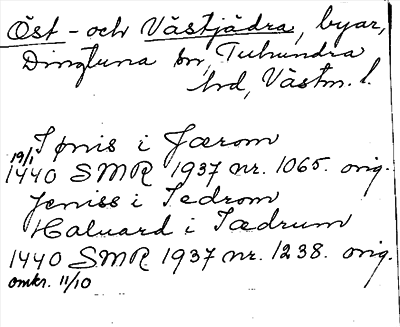 Öst- och Västjädra, byar,
Dingtuna sn, Tuhundra
hrd, Västm. l.
Jønis i Jærom
19/1
1440 SMR 1937 nr. 1065. orig.
Jeniss i Iedrom
Haluard i Iædrum
1440 SMR 1937 nr. 1238. orig.
omkr. 11/10